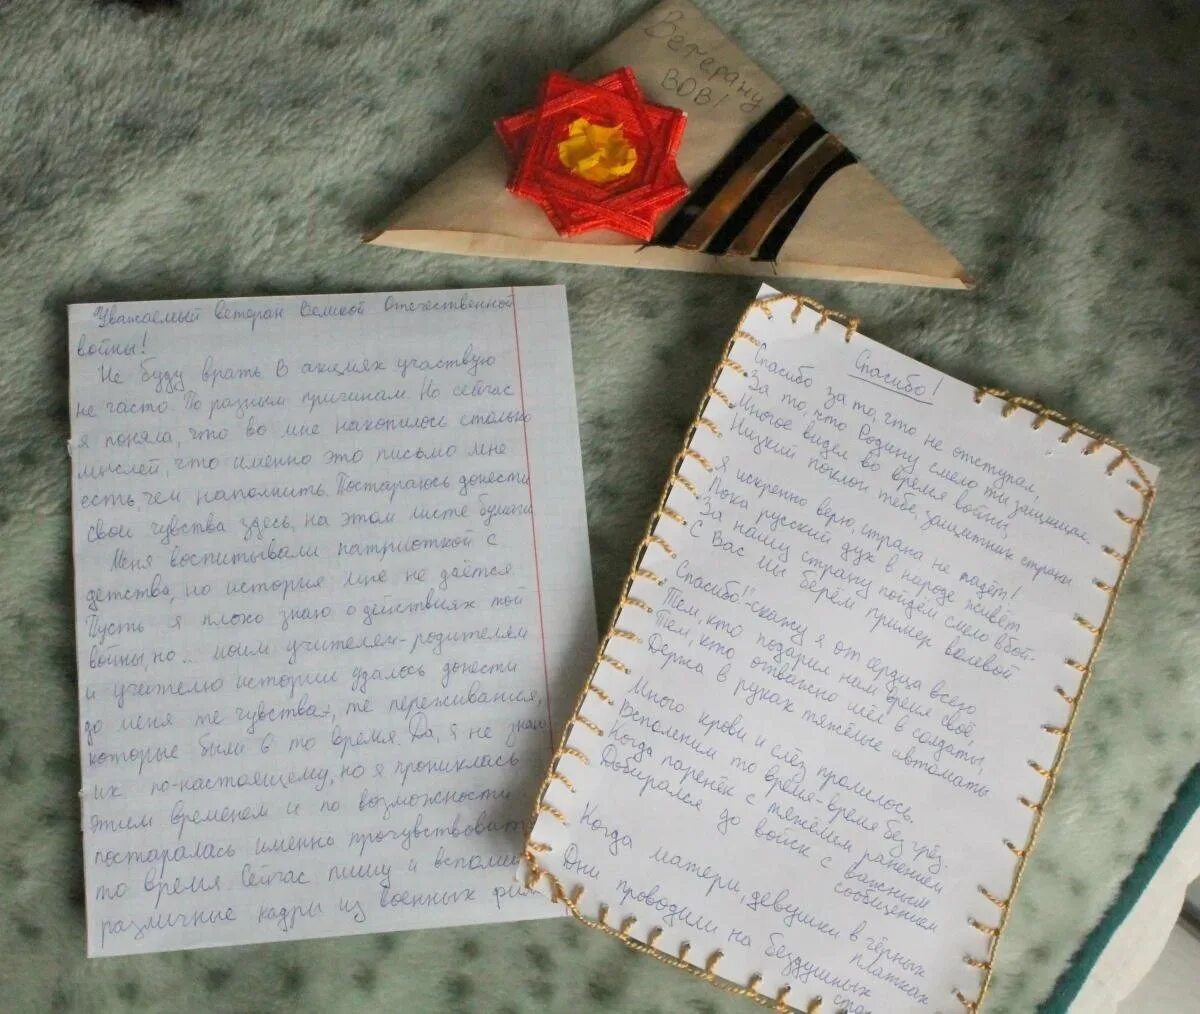 Ветерану
ВОВ!
Уважаемый ветеран Великой Отечественной
войны!
Не буду врать в акциях участвую
не часто. По разным причинам. Но сейчас
я поняла, что во мне накопилось столько
мыслей, что именно это письмо мне
есть, чем наполнить. Постараюсь донести
свои чувства здесь, на этом листе бумаги.
Меня воспитывали патриоткой с
детства, но история мне не даётся.
Пусть я плохо знаю о действиях той
войны, но... моим учителям-родителям
и учителю истории удалось донести
до меня те чувства, те переживания,
которые были в то время. Да, я не знаю
их по-настоящему, но я прониклась
этим временем и по возможности
постаралась именно прочувствовать
то время. Сейчас пишу и
различные кадры из военных
Спасибо!
Спасибо за то, что не отступал,
За то, что Родину смело ты защищал.
Многое видел во время войны,
Низкий поклон тебе, защитник страны
Я искренно верю, страна не падёт!
Пока русский дух в народе живёт
За нашу страну пойдём смело в бой-
С Вас мы берём пример волевой
"Спасибо!"-скажу я от сердца всего
Тем, кто подарил нам время своё,
Тем, кто отважно шёл в солдаты,
Держа в руках тяжёлые автоматы
Много крови и слёз пролилось.
Вспомним то время-время без грёз.
Когда паренёк с тяжёлым ранением
Добирался до войск с важным
сообщением
Когда матери, девушки в чёрных
платках
Дни проводили на бездушных